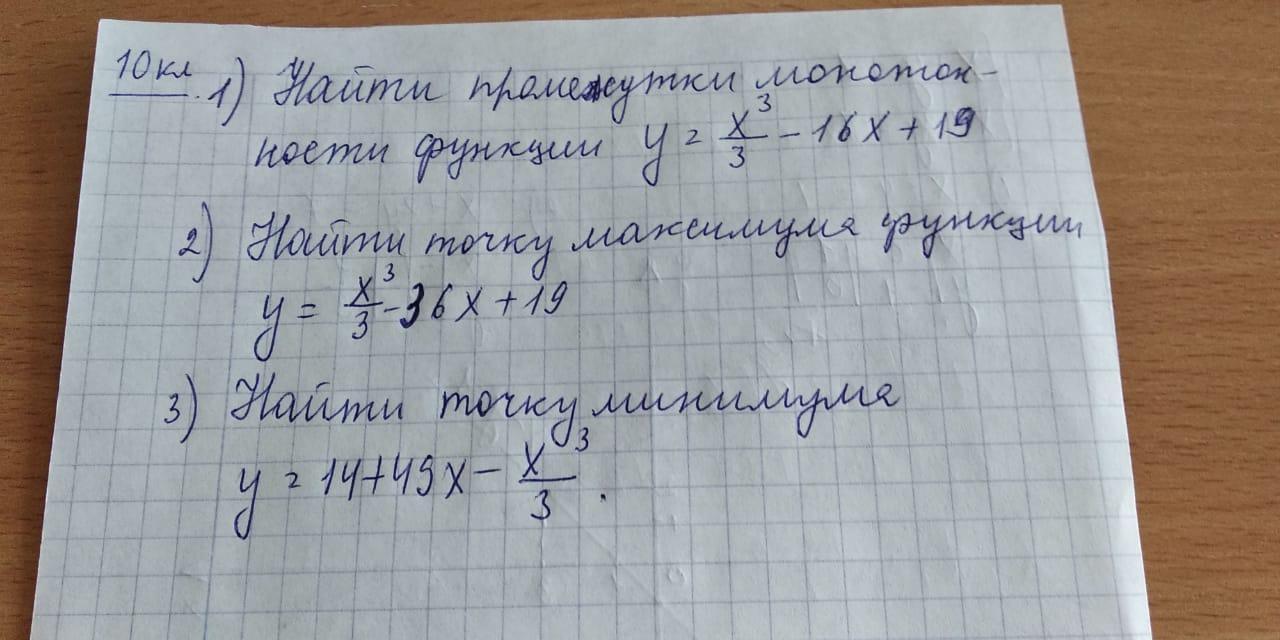 10 кл. 1) Найти промежутки монотон-
ности функции y = x³/3 - 16x + 19
2) Найти точку максимума функции
y = x³/3 - 36x + 19
3) Найти точку минимума
y = 14 + 49x - x³/3.